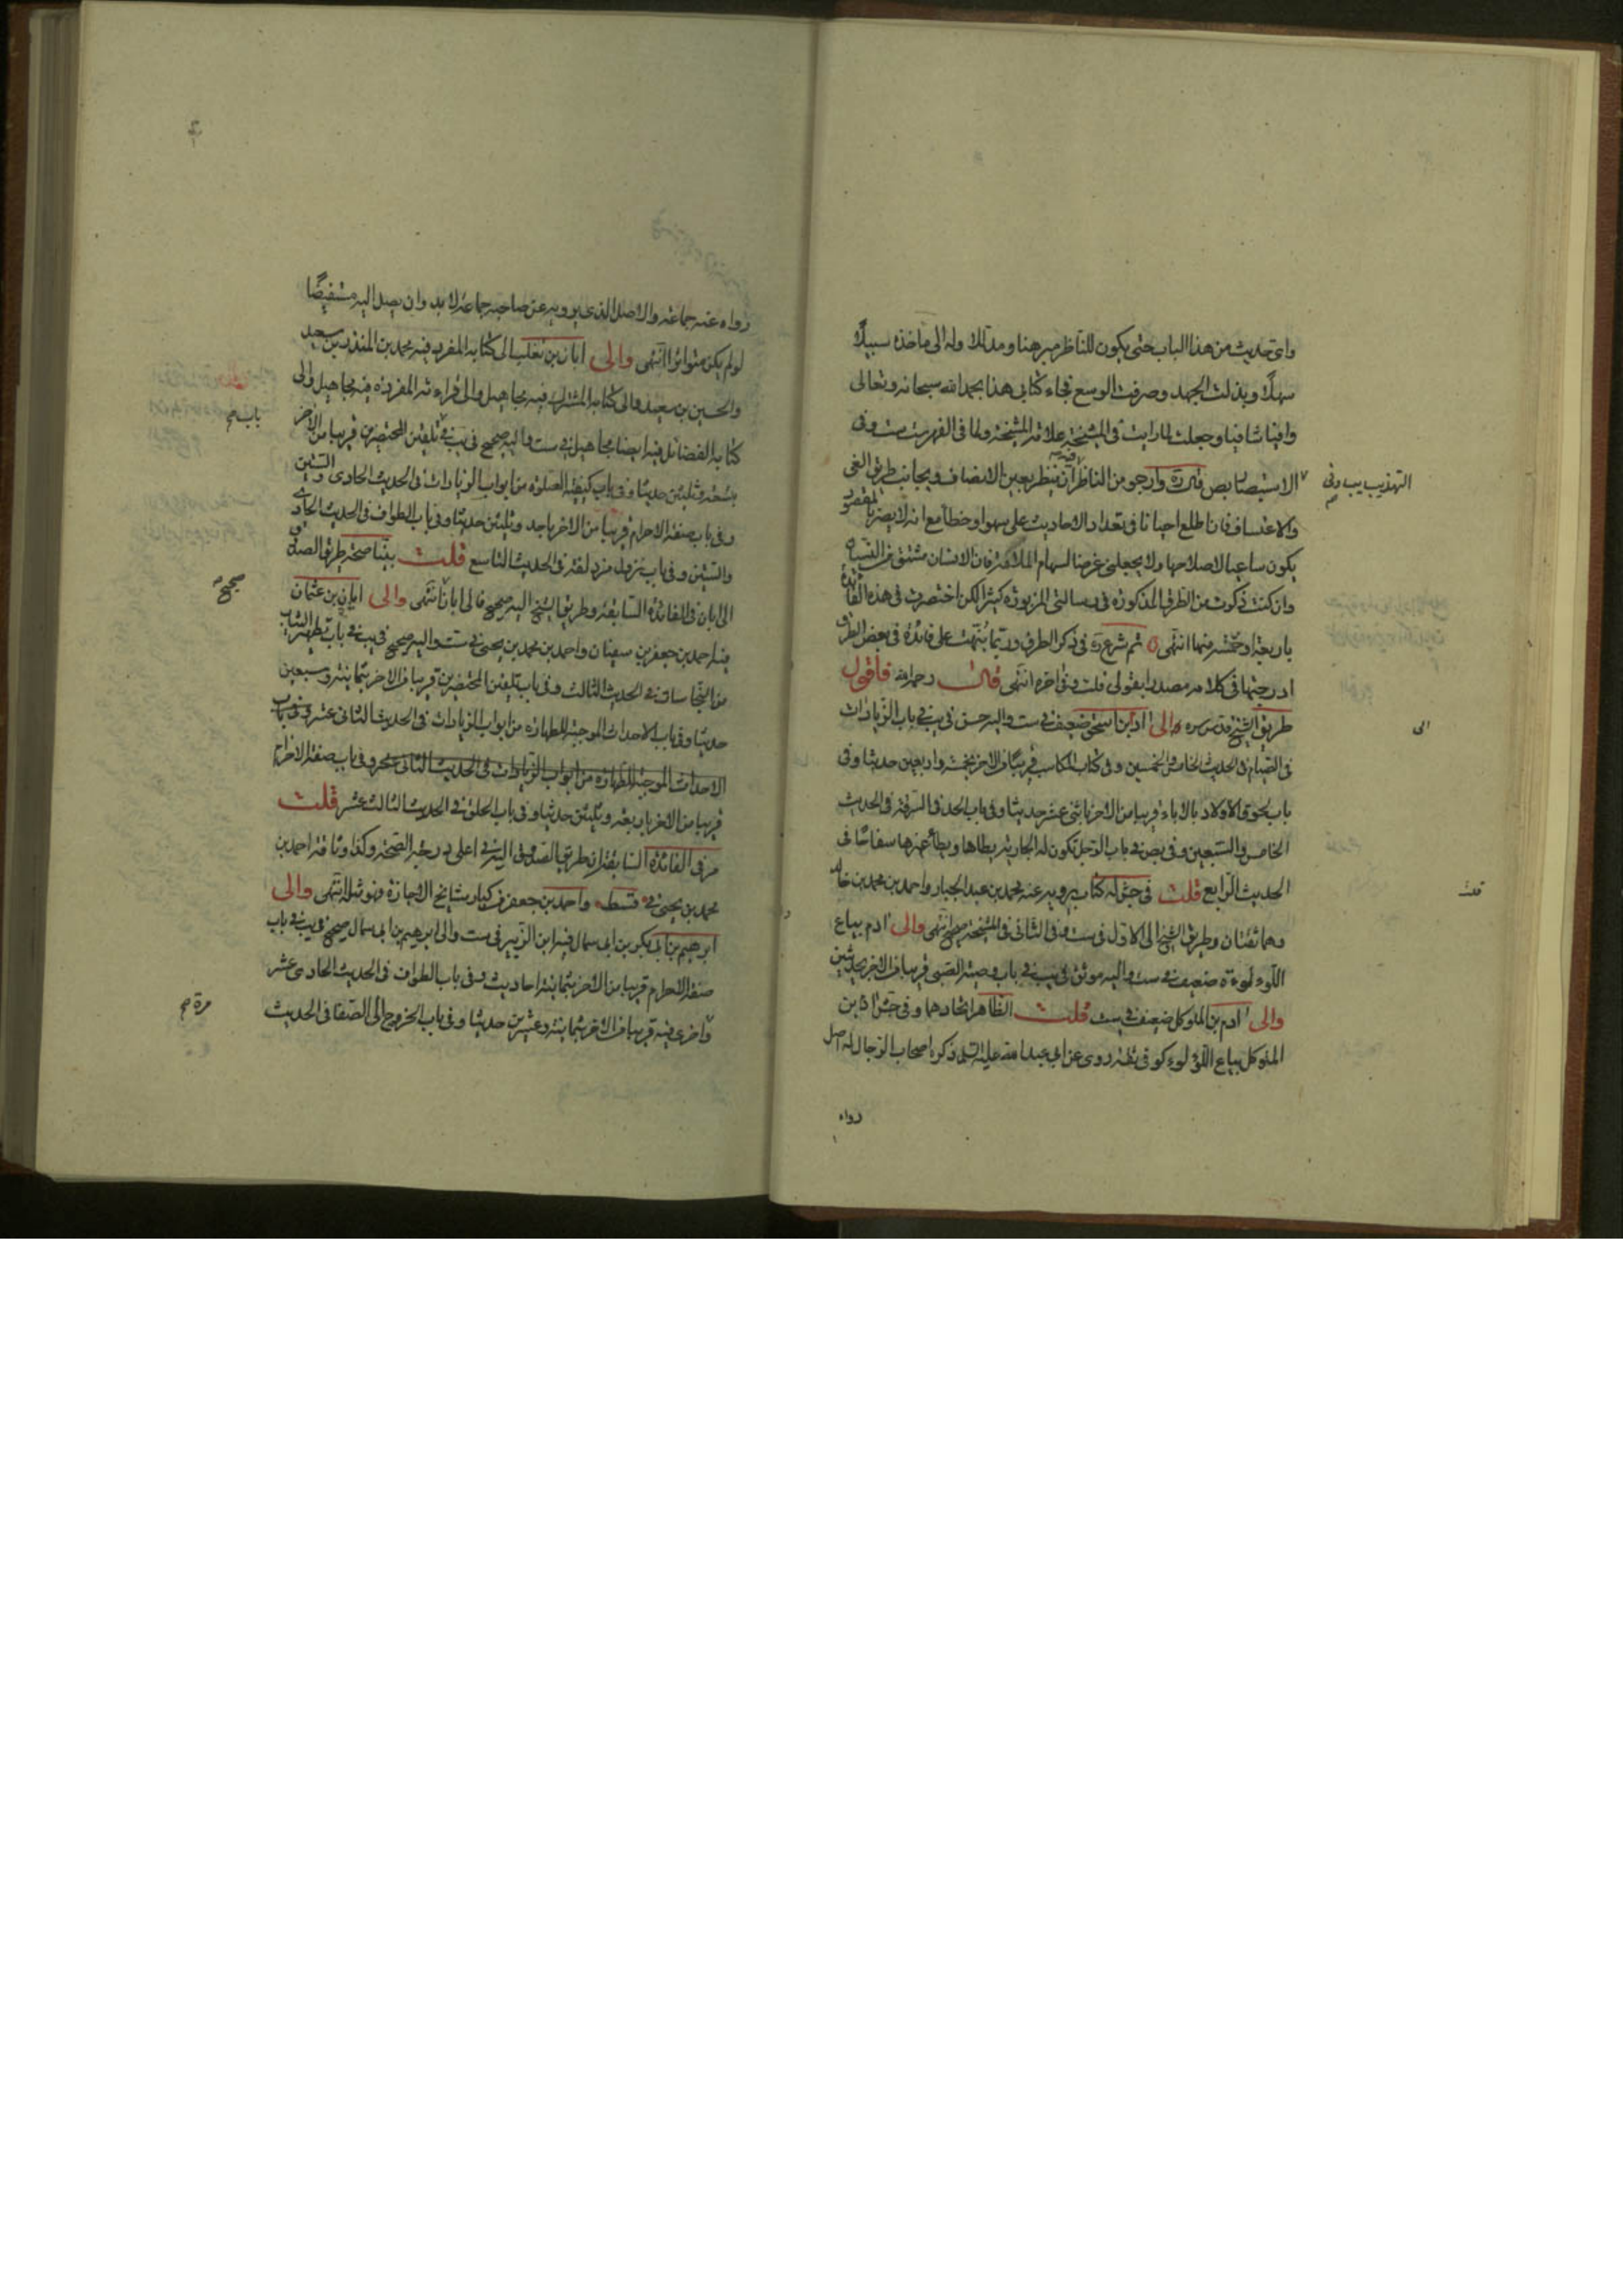 واى حديث من هذا الباب حتى يكون للناظر مبرهنا ومدللا وله الى ماخذه سبيلا
سهلا وبذلت الجهد وصرفت الوسع فجاء كتابى هذا بحمد الله سبحانه وتعالى
وافيا شافيا وجعلت لما رايت فى المشيخة علامة المشيخة ولما فى الفهرست ست وفى
التهذيب يب وفى
الاستبصار بص قال ره وارجو من الناظر فيه ان ينظر بعين الانصاف ويجانب طريق الغى
والاعتساف فان اطلع احيانا فى تعداد الاحاديث على سهو او خطأ مع انه لا يضر بالمقصود
يكون ساعيا لاصلاحها ولا يجعلنى غرضا لسهام الملامة فان الانسان مشتق من النسيان
وان كنت ذكرت من الطرق المذكورة فى رسالتى المزبورة كثيرا لكن اختصرت فى هذه الفائدة
باربعة او خمسة منها انتهى ثم شرع ره فى ذكر الطرق وربما نبهت على فائدة فى بعض الطرق
ادرجتها فى كلامه مصدرا بقولى قلت وفى اخره انتهى قال رحمه الله فاقول
طريق الشيخ قدس سره والى ادم بن اسحق ضعيف فى ست واليه حسن فى يب فى باب الزيادات
الى
فى الصيام فى الحديث الخامس والخمسين وفى كتاب المكاسب قريبا من الاخر بخمسة واربعين حديثا وفى
باب لحوق الاولاد بالاباء قريبا من الاخر باثنى عشر حديثا وفى باب الحد فى السرقة فى الحديث
الخامس والسبعين وفى بص فى باب الرجل تكون له الجارية يطاها ويطأ غيرها سفاحا فى
الحديث الرابع قلت فى جش له كتاب يرويه عنه محمد بن عبد الجبار واحمد بن محمد بن خالد
قلت
وهما ثقتان وطريق الشيخ الى الاول فى ست وفى الثانى فى المشيخة صحيح انتهى والى ادم بياع
اللؤلؤ ة ضعيف فى ست واليه موثق فى يب فى باب وصية الصبى قريبا من الاخر بحديثين
والى ادم بن المتوكل ضعيف فى ست قلت الظاهر اتحادهما وفى جش ادم بن
المتوكل بياع اللؤلؤ كوفى ثقة روى عن ابى عبد الله عليه السلم ذكره اصحاب الرجال له اصل
رواه
رواه عنه جماعة والاصل الذى يرويه عن صاحبه جماعة لا بد وان يصل اليه مستفيضا
لو لم يكن متواترا انتهى والى ابان بن تغلب الى كتابه المفرد فيه محمد بن المنذر بن سعيد
والحسين بن سعيد والى كتابه المشترك فيه مجاهيل والى قراءته المفردة فيه مجاهيل والى
كتابه الفضائل فيه ايضا مجاهيل فى ست واليه صحيح فى يب فى تلقين المحتضرين قريبا من الاخر
باب صح
بتسعة وثلثين حديثا وفى باب كيفية الصلوة من ابواب الزيادات فى الحديث الحادى والستين
وفى باب صفة الاحرام قريبا من الاخر باحد وثلثين حديثا وفى باب الطواف فى الحديث الحادى
والستين وفى باب نزول مزدلفة فى الحديث التاسع قلت بينا صحة طريق الصدوق
الى ابان فى الفائدة السابقة وطريق الشيخ اليه صحيح فالى ابان انتهى والى ابان بن عثمان
صحيح
فيه احمد بن جعفر بن سفيان واحمد بن محمد بن يحيى فى ست واليه صحيح فى يب فى باب تطهير الثياب
من النجاسات فى الحديث الثالث وفى باب تلقين المحتضرين قريبا من الاخر بثمانية وسبعين
حديثا وفى باب الاحداث الموجبة للطهارة من ابواب الزيادات فى الحديث الثانى عشر وفى باب
الاحداث الموجبة للطهارة من ابواب الزيادات فى الحديث الثانى عشر وفى باب صفة الاحرام
قريبا من الاخر باربعة وثلثين حديثا وفى باب الحلق فى الحديث الثالث عشر قلت
مر فى الفائدة السابقة ان طريق الصدوق اليه فى اعلى درجة الصحة وكذا وثاقة احمد بن
محمد بن يحيى فى واحمد بن جعفر من كبار مشايخ الاجازة فهو مثله انتهى والى
ابرهيم بن ابى بكر بن ابى سمال فيه ابن الزبير فى ست والى ابرهيم بن ابى سمال صحيح فى يب فى باب
صفة الاحرام قريبا من الاخر بثمانية احاديث وفى باب الطواف فى الحديث الحادى عشر
مرة صح
واخرى فيه قريبا من الاخر بثمانية وعشرين حديثا وفى باب الخروج الى الصفا فى الحديث